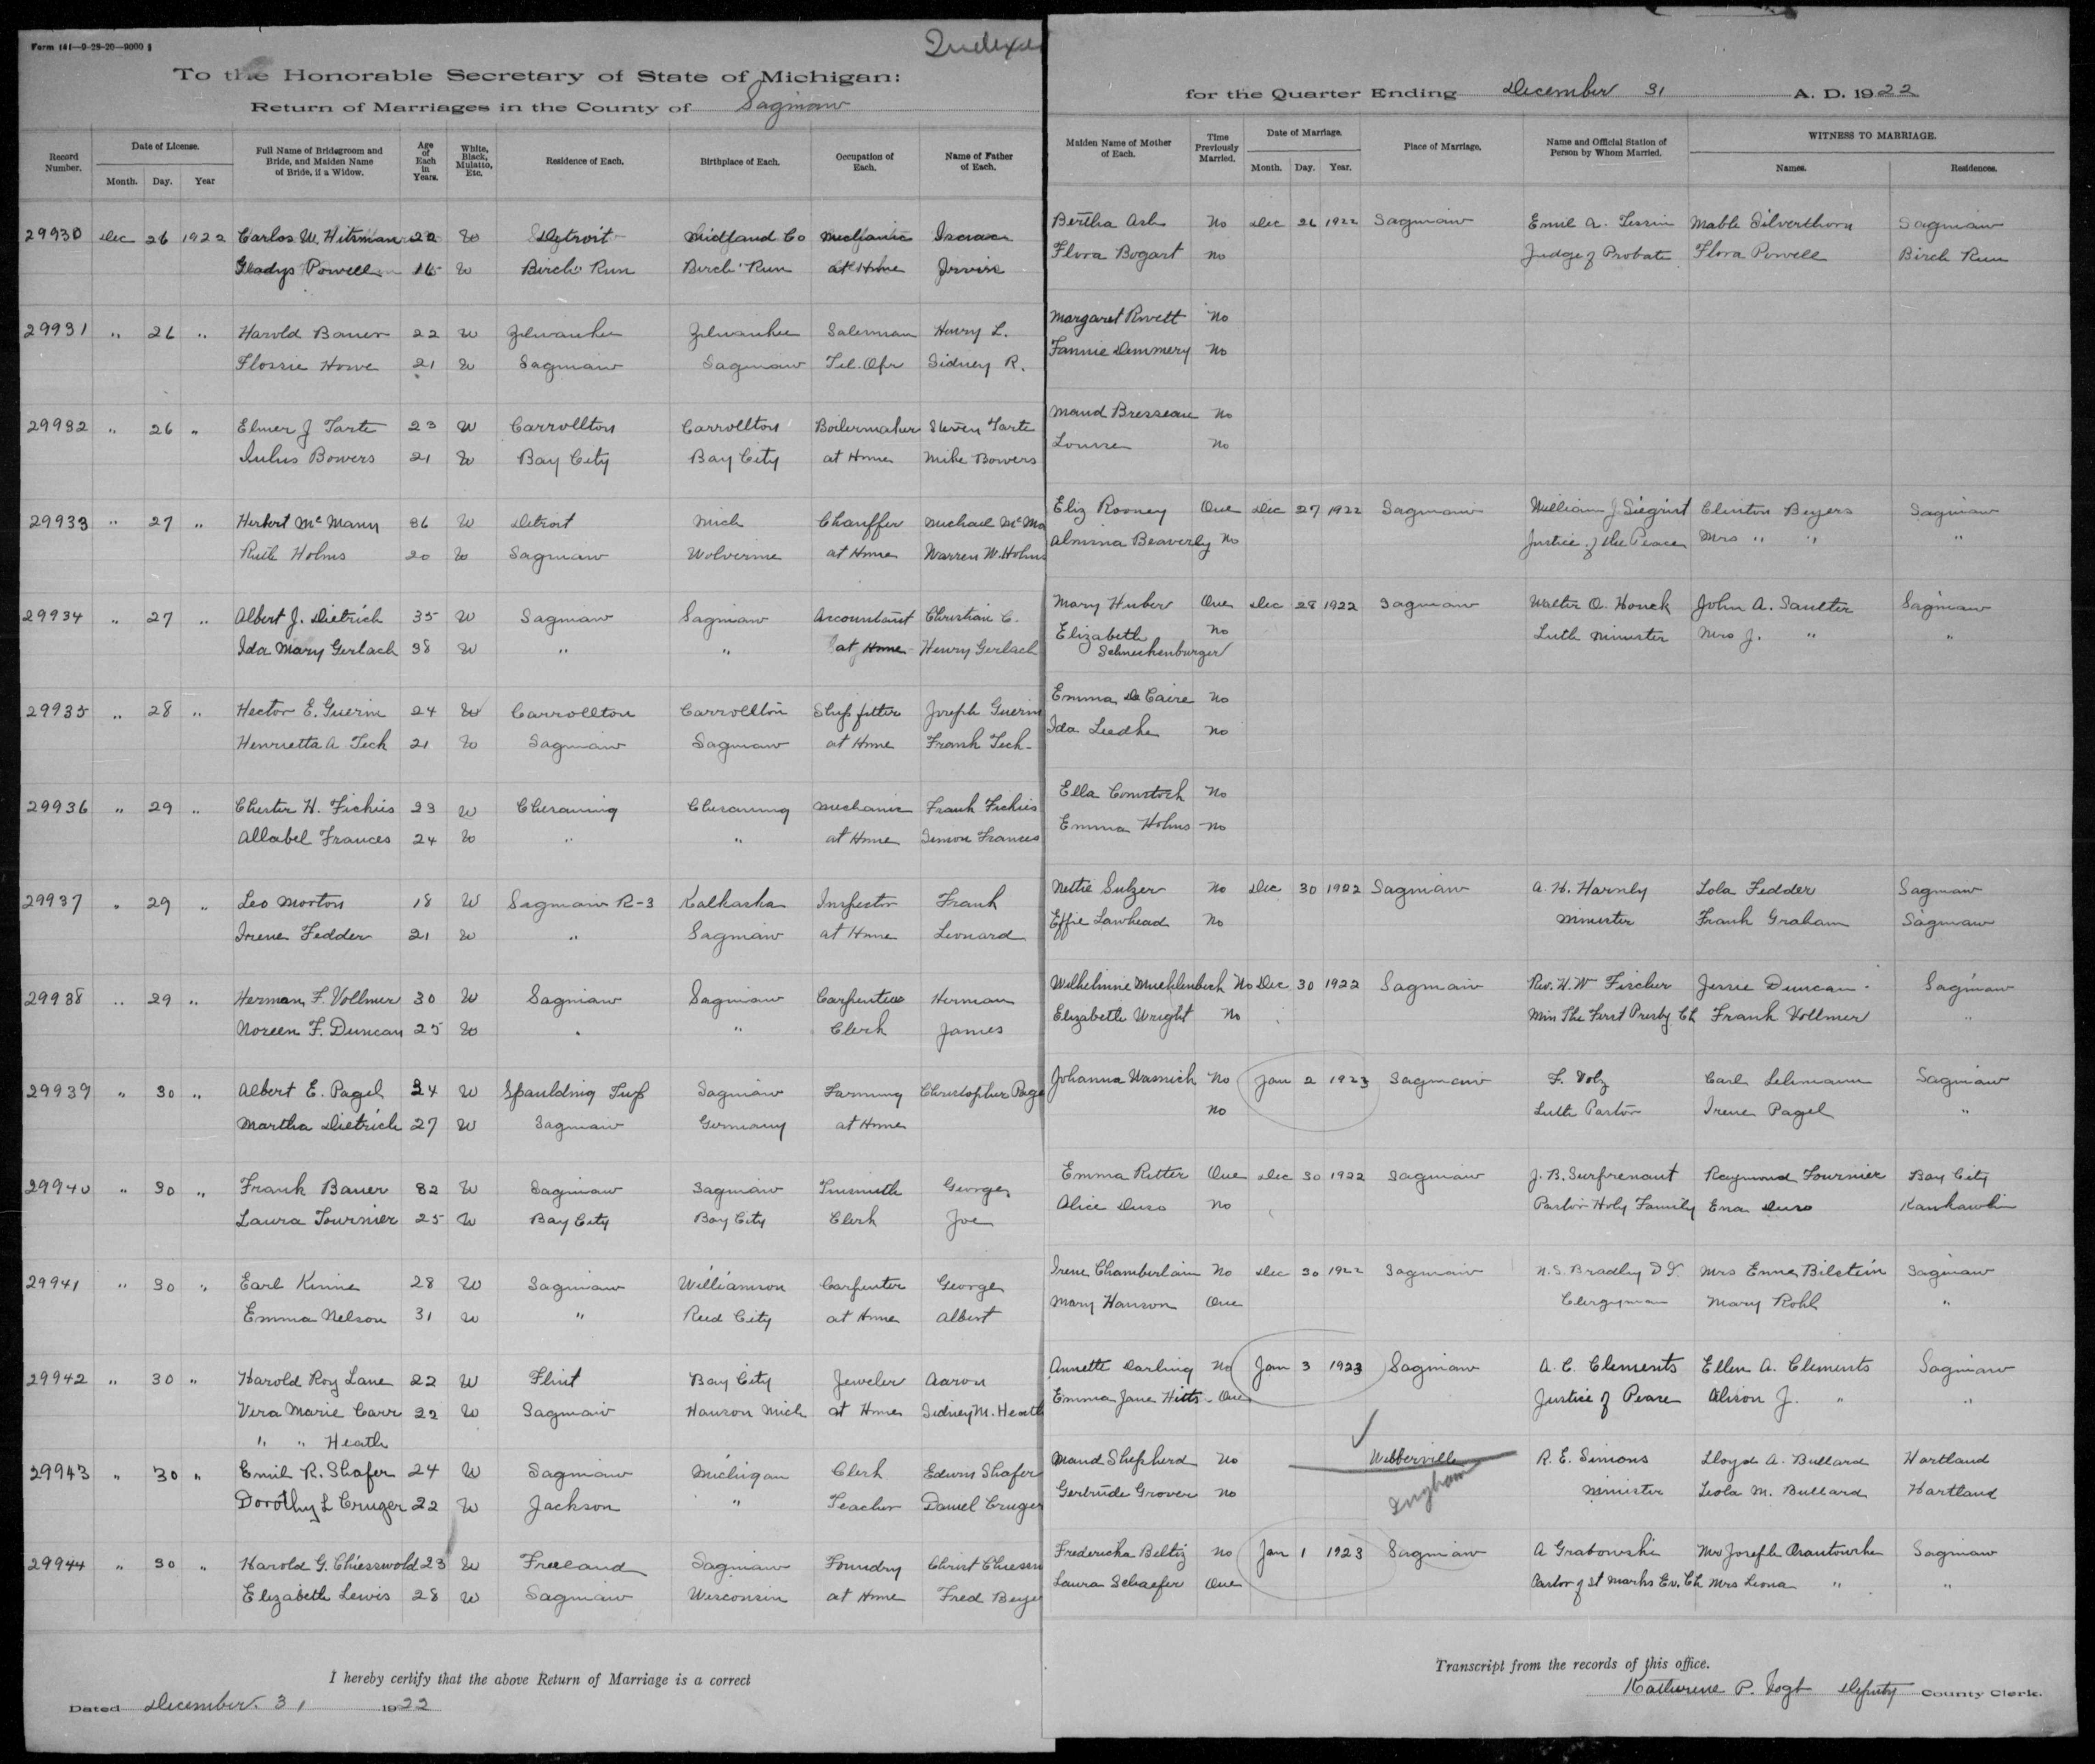 Form 141—9-25-20—9000
Indexed
To the Honorable Secretary of State of Michigan:
Return of Marriages in the County of Saginaw
for the Quarter Ending December 31 A. D. 1922
Record Number. Date of License. Month. Day. Year Full Name of Bridegroom and Bride, and Maiden Name of Bride, if a Widow. Age of Each in Years. White, Black, Mulatto, Etc. Residence of Each. Birthplace of Each. Occupation of Each. Name of Father of Each. Maiden Name of Mother of Each. Time Previously Married. Date of Marriage. Month. Day. Year. Place of Marriage. Name and Official Station of Person by Whom Married. WITNESS TO MARRIAGE. Names. Residences.
29930 Dec 26 1922 Carlos W. Hitsman 22 W Detroit Midland Co Mechanic Isaac Bertha Ash No Dec 26 1922 Saginaw Emil A. Tessin Mable Silverthorn Saginaw
Gladys Powell 16 W Birch Run Birch Run at Home Flora Bogart no Judge of Probate Flora Powell Birch Run
29931 " 26 " Harold Bauer 22 W Zilwaukee Zilwaukee Salesman Henry L. Margaret Rivett No
Flossie Howe 21 W Saginaw Saginaw Tel. Opr Sidney R. Fannie Demmery No
29932 " 26 " Elmer J Tarte 23 W Carrollton Carrollton Boilermaker Steven Tarte Maud Bresseau no
Bowers 21 W Bay City Bay City at Home Mike Bowers no
29933 " 27 " Herbert McMann 36 W Detroit Mich Chauffer Michael McMa Eliz Rooney One Dec 27 1922 Saginaw William J Siegrist Clinton Beyers Saginaw
Ruth Holms 20 W Saginaw Wolverine at Home Warren W. Holms Almina Beaverly No Justice of the Peace Mrs " " "
29934 " 27 " Albert J. Dietrich 35 W Saginaw Saginaw Accountant Christian C. Mary Huber One Dec 28 1922 Saginaw Walter O. Houck John A. Saulter Saginaw
Ida Mary Gerlach 38 W " " at Home Henry Gerlach Elizabeth Schneckenburger no Luth Minister Mrs J. " "
29935 " 28 " Hector E. Guerin 24 W Carrollton Carrollton Ship fitter Joseph Guerin Emma De Caire no
Henrietta A Tech 21 W Saginaw Saginaw at Home Frank Tech Ida Liedke no
29936 " 29 " Chester H. Fickies 23 W Chesaning Chesaning Mechanic Frank Fickies Ella Comstock No
Allabel Frances 24 W " " at Home Simon Frances Emma Holms no
29937 " 29 " Leo Morton 18 W Saginaw R-3 Kalkaska Inspector Frank Nettie Sulzer No Dec 30 1922 Saginaw A. H. Harnly Lola Fedder Saginaw
Irene Fedder 21 W " Saginaw at Home Leonard Effie Lawhead No Minister Frank Graham Saginaw
29938 " 29 " Herman F. Vollmer 30 W Saginaw Saginaw Carpenter Herman Wilhelmine Muehlenbech No Dec 30 1922 Saginaw Rev. H. W Fischer Jessie Duncan Saginaw
Noreen F. Duncan 25 W " " Clerk James Elizabeth Wright No Min The First Presby. Ch Frank Vollmer "
29939 " 30 " Albert E. Pagel 34 W Spaulding Twp Saginaw Farming Christopher Page Johanna Wasnich No Jan 2 1923 Saginaw F. Volz Carl Lehmann Saginaw
Martha Dietrich 27 W Saginaw Germany at Home no Luth Pastor Irene Pagel "
29940 " 30 " Frank Bauer 32 W Saginaw Saginaw Tinsmith George Emma Ritter One Dec 30 1922 Saginaw J. B. Surprenant Raymond Fournier Bay City
Laura Fournier 25 W Bay City Bay City Clerk Joe Alice Duso No Pastor Holy Family Ena Duso Kawkawlin
29941 " 30 " Earl Kinne 28 W Saginaw Williamson Carpenter George Irene Chamberlain No Dec 30 1922 Saginaw N. S. Bradley D.D. Mrs Emma Bilstein Saginaw
Emma Nelson 31 W " Reed City at Home Albert Mary Hanson One Clergyman Mary Rohl "
29942 " 30 " Harold Roy Lane 22 W Flint Bay City Jeweler Aaron Annette Darling No Jan 3 1923 Saginaw A. C. Clements Ellen A. Clements Saginaw
Vera Marie Carr 22 W Saginaw Hanson Mich at Home Sidney M. Heath Emma Jane Hitts One Justice of Peace Alison J. " "
" " Heath
29943 " 30 " Emil R. Shafer 24 W Saginaw Michigan Clerk Edwin Shafer Maud Shepherd No Webberville R. E. Simons Lloyd A. Bullard Hartland
Dorothy L Cruger 22 W Jackson " Teacher Daniel Cruger Gertrude Grover no Ingham Minister Leola M. Bullard Hartland
29944 " 30 " Harold G. Chiesswold 23 W Freeland Saginaw Foundry Christ Fredericka Beltz no Jan 1 1923 Saginaw A Grabowski Mrs Joseph Saginaw
Elizabeth Lewis 28 W Saginaw Wisconsin at Home Fred Beye Laura Schaefer One Pastor of St Marks Ev. Ch Mrs Leona " "
I hereby certify that the above Return of Marriage is a correct
Transcript from the records of this office.
Dated December 31 1922
Katherine P. Vogt Deputy County Clerk.